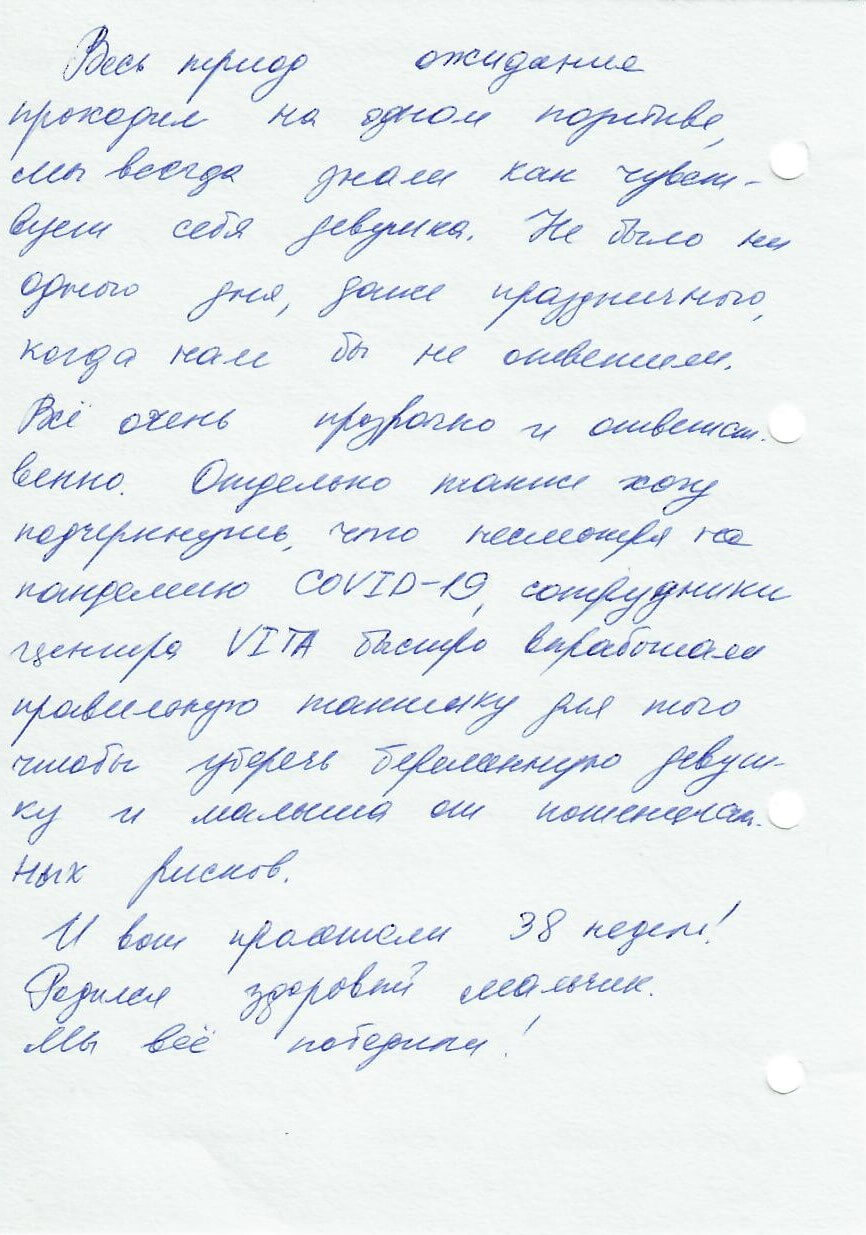 Весь период ожидания
проходил на одном позитиве,
мы всегда знали как чувст-
вует себя девушка. Не было ни
одного дня, даже праздничного,
когда нам бы не ответили.
Всё очень прозрачно и ответст-
венно. Отдельно также хочу
подчеркнуть, что несмотря на
пандемию COVID-19, сотрудники
центра VITA быстро выработали
правильную тактику для того
чтобы уберечь беременную девуш-
ку и малыша от потенциал-
ных рисков.
И вот пролетели 38 недель!
Родился здоровый мальчик.
Мы всё победили!